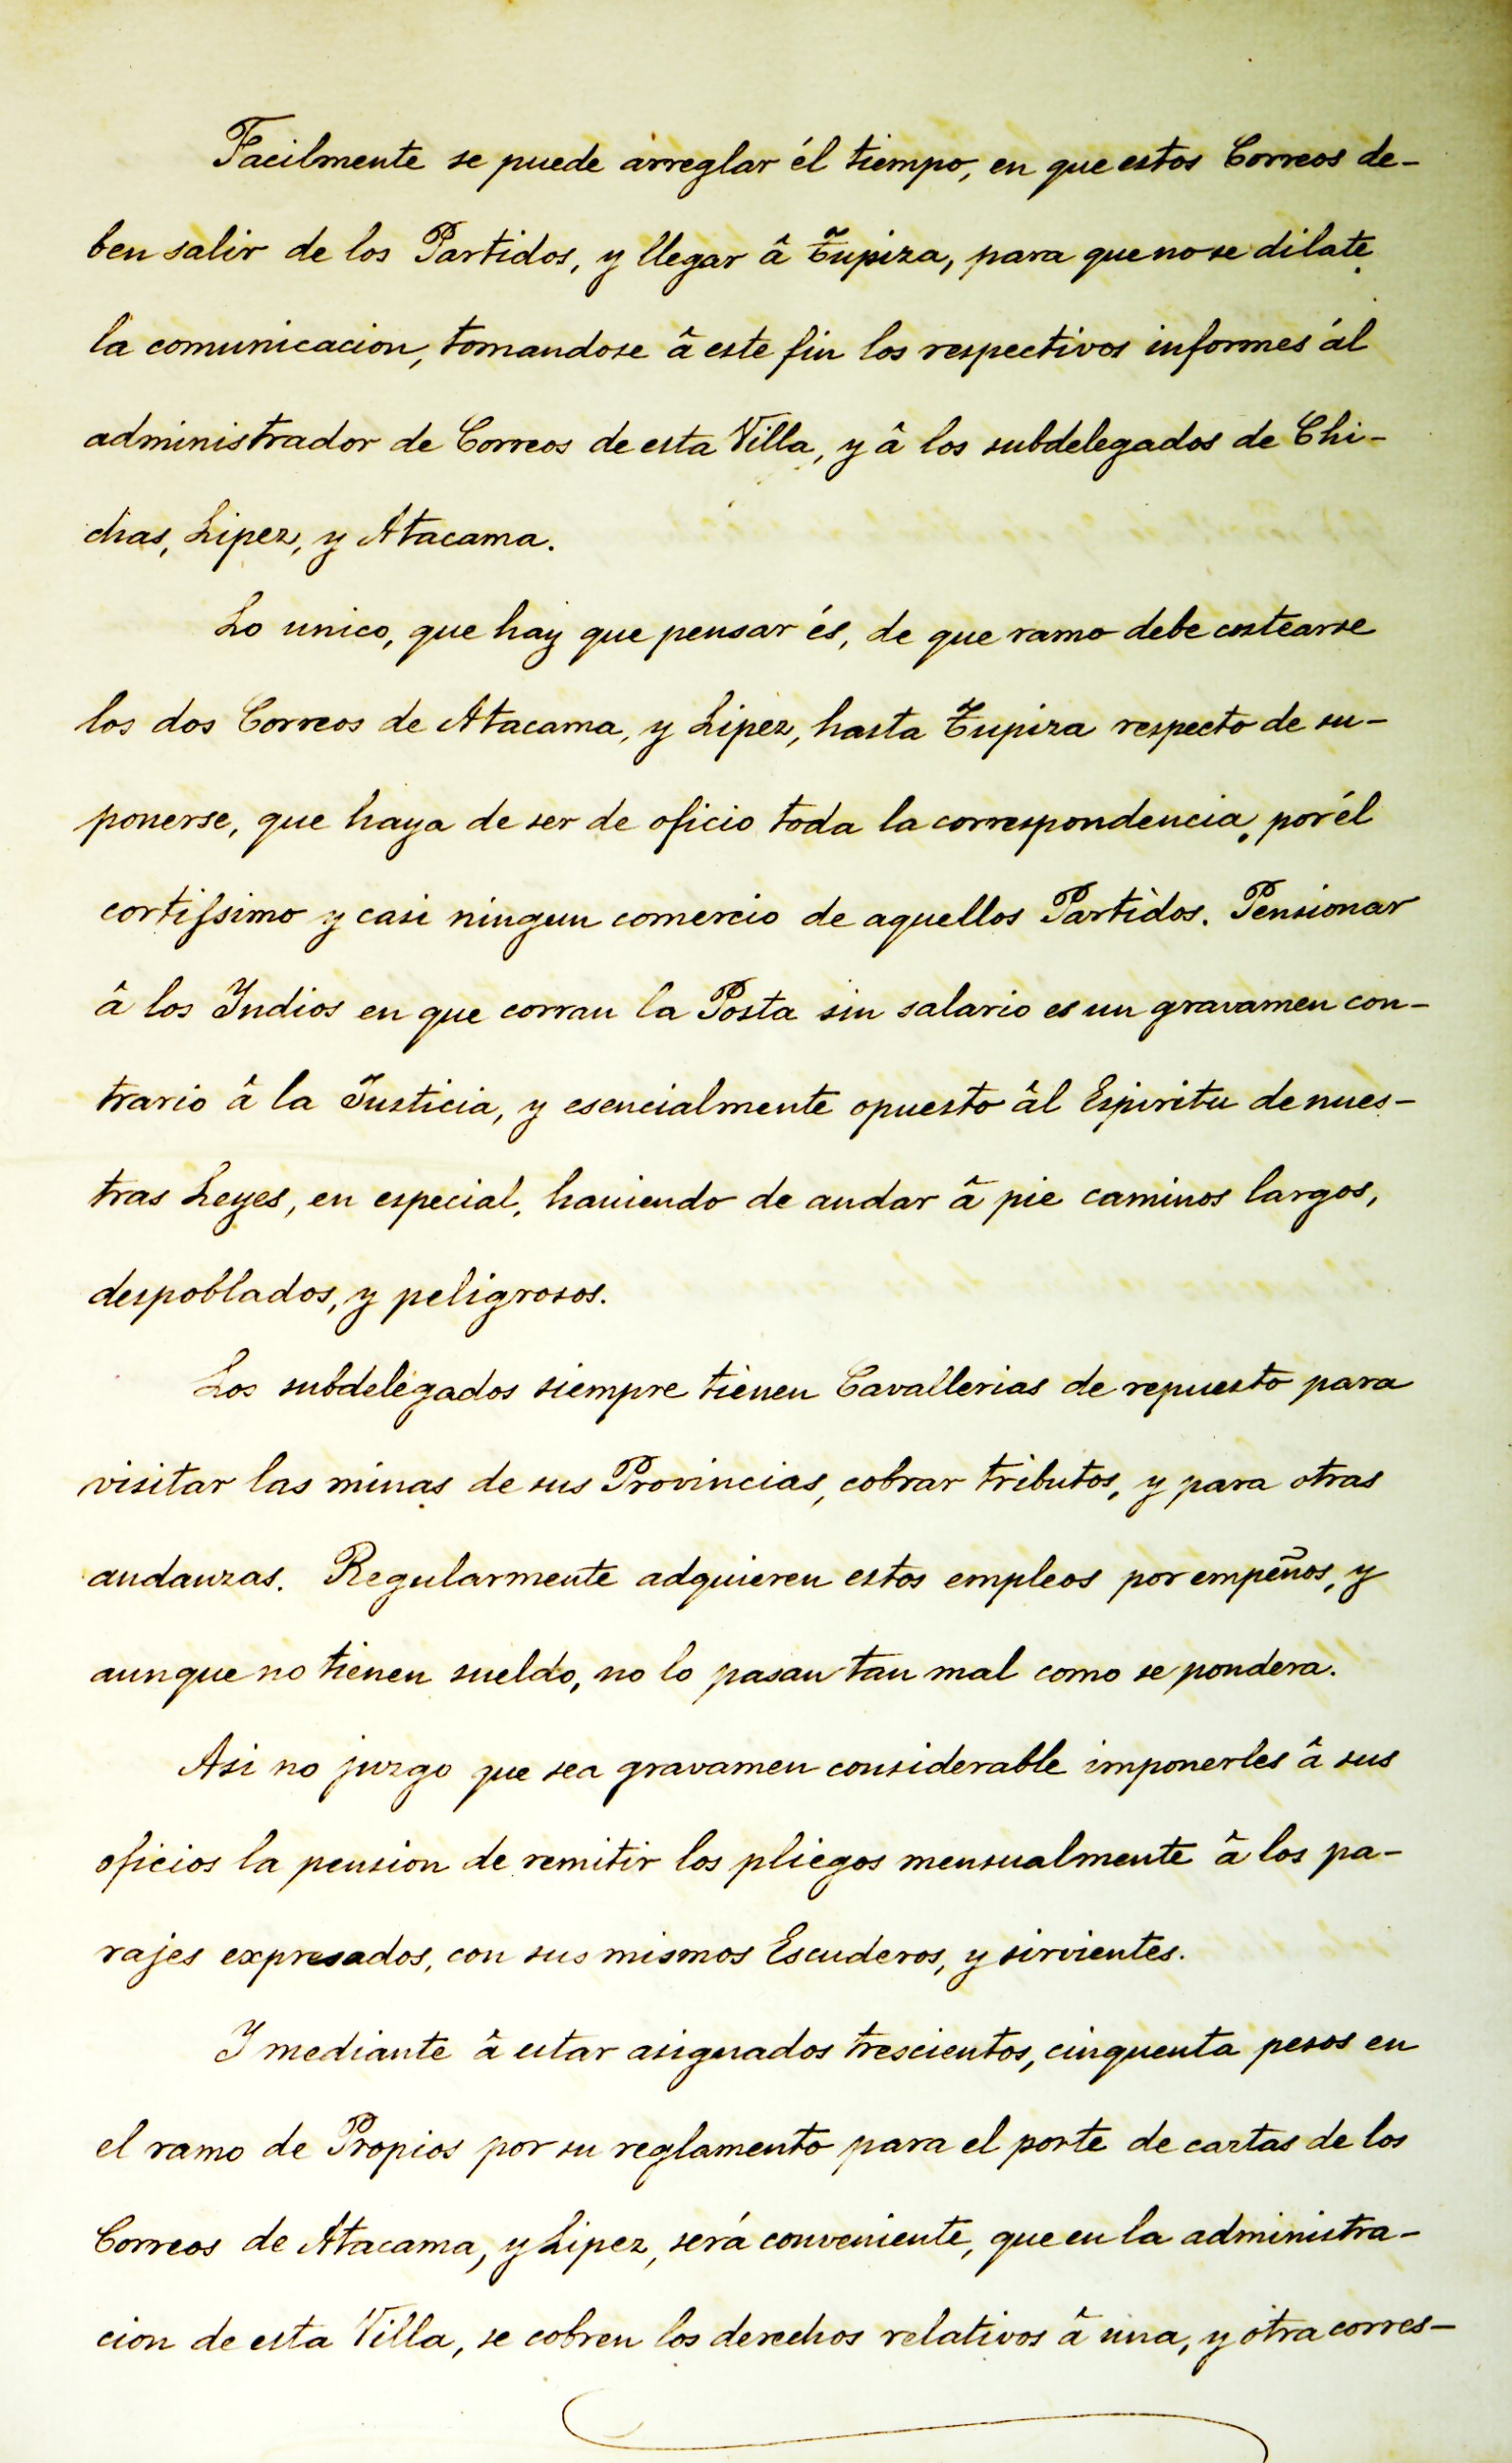 Facilmente se puede arreglar él tiempo, en que estos Correos de-
ben salir de los Partidos, y llegar â Tupiza, para que no se dilate
la comunicacion, tomandose â este fin los respectivos informes ál
administrador de Correos de esta Villa, y â los subdelegados de Chi-
chas, Lipez, y Atacama.
Lo unico, que hay que pensar és, de que ramo debe costearse
los dos Correos de Atacama, y Lipez, hasta Tupiza respecto de su-
ponerse, que haya de ser de oficio toda la correspondencia, por él
cortissimo y casi ningun comercio de aquellos Partidos. Pensionar
â los Indios en que corran la Posta sin salario es un gravamen con-
trario â la Justicia, y esencialmente opuesto âl Espiritu de nues-
tras Leyes, en especial, haviendo de andar â pie caminos largos,
despoblados, y peligrosos.
Los subdelegados siempre tienen Cavallerias de repuesto para
visitar las minas de sus Provincias, cobrar tributos, y para otras
andanzas. Regularmente adquieren estos empleos por empeños, y
aunque no tienen sueldo, no lo pasan tan mal como se pondera.
Asi no juzgo que sea gravamen considerable imponerles â sus
oficios la pension de remitir los pliegos mensualmente â los pa-
rajes expresados, con sus mismos Escuderos, y sirvientes.
Y mediante â estar asignados trescientos, cinquenta pesos en
el ramo de Propios por su reglamento para el porte de cartas de los
Correos de Atacama, y Lipez, será conveniente, que en la administra-
cion de esta Villa, se cobren los derechos relativos â una, y otra corres-